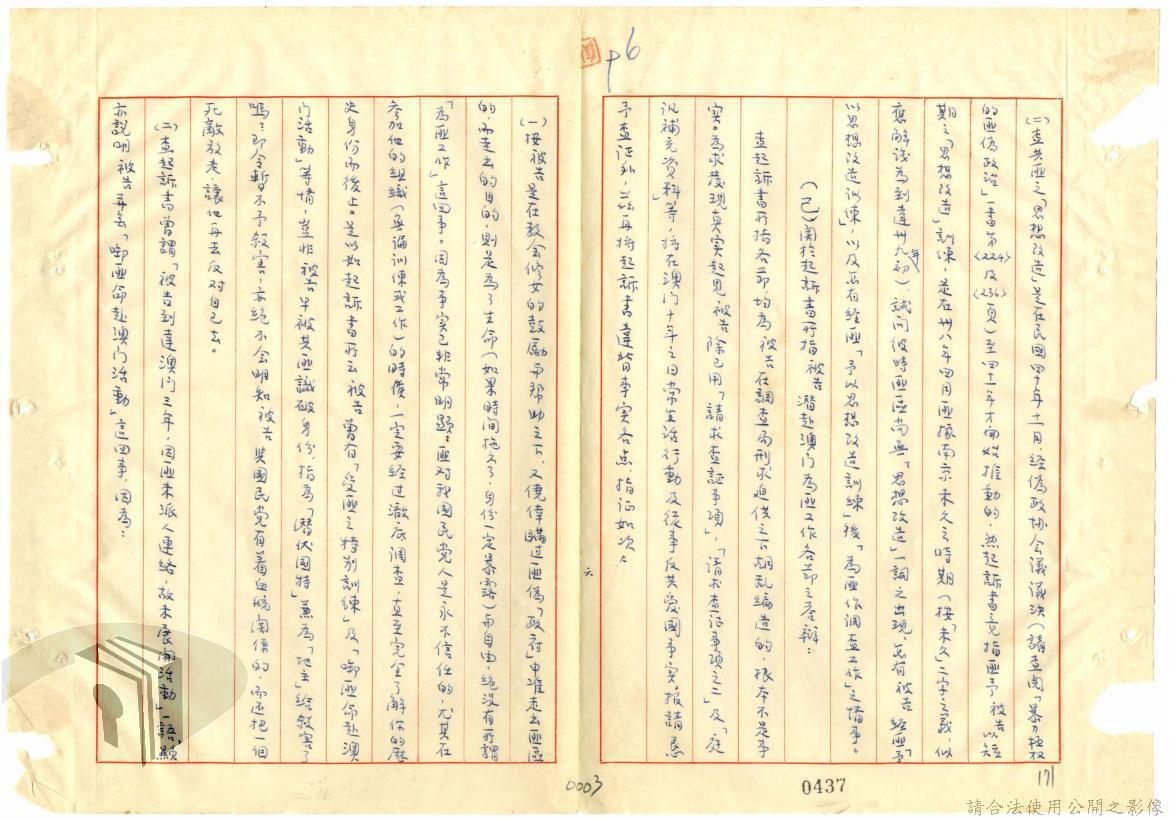 (二)查共匪之「思想改造」是在民國四十年十一月，經偽政協会議議決（請查閱「暴力極权
的匪偽政治」一書第〈224〉及〈236〉頁）至四十一年才開始推動的，然起訴書竟指匪予被告以短
期之「思想改造」訓練，是在卅八年四月匪據南京未久之時期（按「未久」二字之義，似
應解說為到達卅九年初），試问彼時匪區尚無「思想改造」一詞之出現，怎有被告經匪「予
以思想改造訓練」，以及怎有经匪「予以思想改造訓練」後「為匪作調查工作」之情事。
（己）関於起訴書所指被告潛赴澳门為匪工作各節之答辯：
查起訴書所指各節，均為被告在調查局刑求迫供之下胡乱編造的，根本不是事
实。為求發現真实起見，被告除已用「請求查証事項」，「請求查証事項之二」及「庭
訊補充資料」等，将在澳门十年之日常生活行動及從事反共愛國事实，报請惠
予查証外，茲再将起訴書違背事实各点，指证如次：
(一)按被告是在教会修女的鼓励与帮助之下，又僥倖瞞过匪偽「政府」申准走出匪區
的，而走出的目的，則是為了生命（如果時间拖久了，身份一定暴露）与自由，絕没有所謂
「為匪工作」這回事。因為事实已非常明顯：匪对我國民党人是永不信任的，尤其在
参加他的組織（無論訓練或工作）的時候，一定要经过澈底調查，直至完全了解你的歷
史身份而後止。是以如起訴書所云被告曾有「受匪之特别訓練」及「啣匪命赴澳
门活動」等情，豈非被告早被共匪識破身份，指為「潛伏國特」兼為「地主」给殺害了
嗎？即令暫不予殺害，亦絕不会明知被告與國民党有着血統関係的，而还把一個
死敵放走，讓他再去反对自己去。
(二)查起訴書曾謂「被告到達澳门三年，因匪未派人連絡，故未展開活動」一語，顯
亦說明被告並無「啣匪命赴澳门活動」這回事，因為：
六
96
171
0003
0437
請合法使用公開之影像